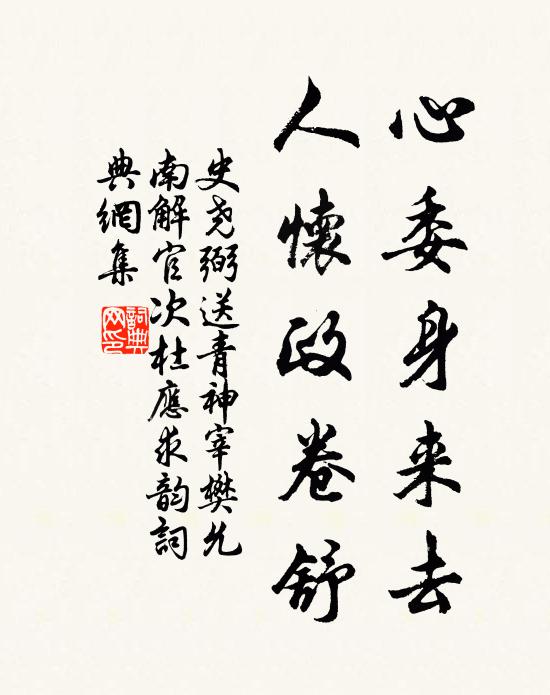 心委身来去
人懷政卷舒
史尧弼送青神宰樊允
南解官次杜應求韵詞
典網集
詞典网印